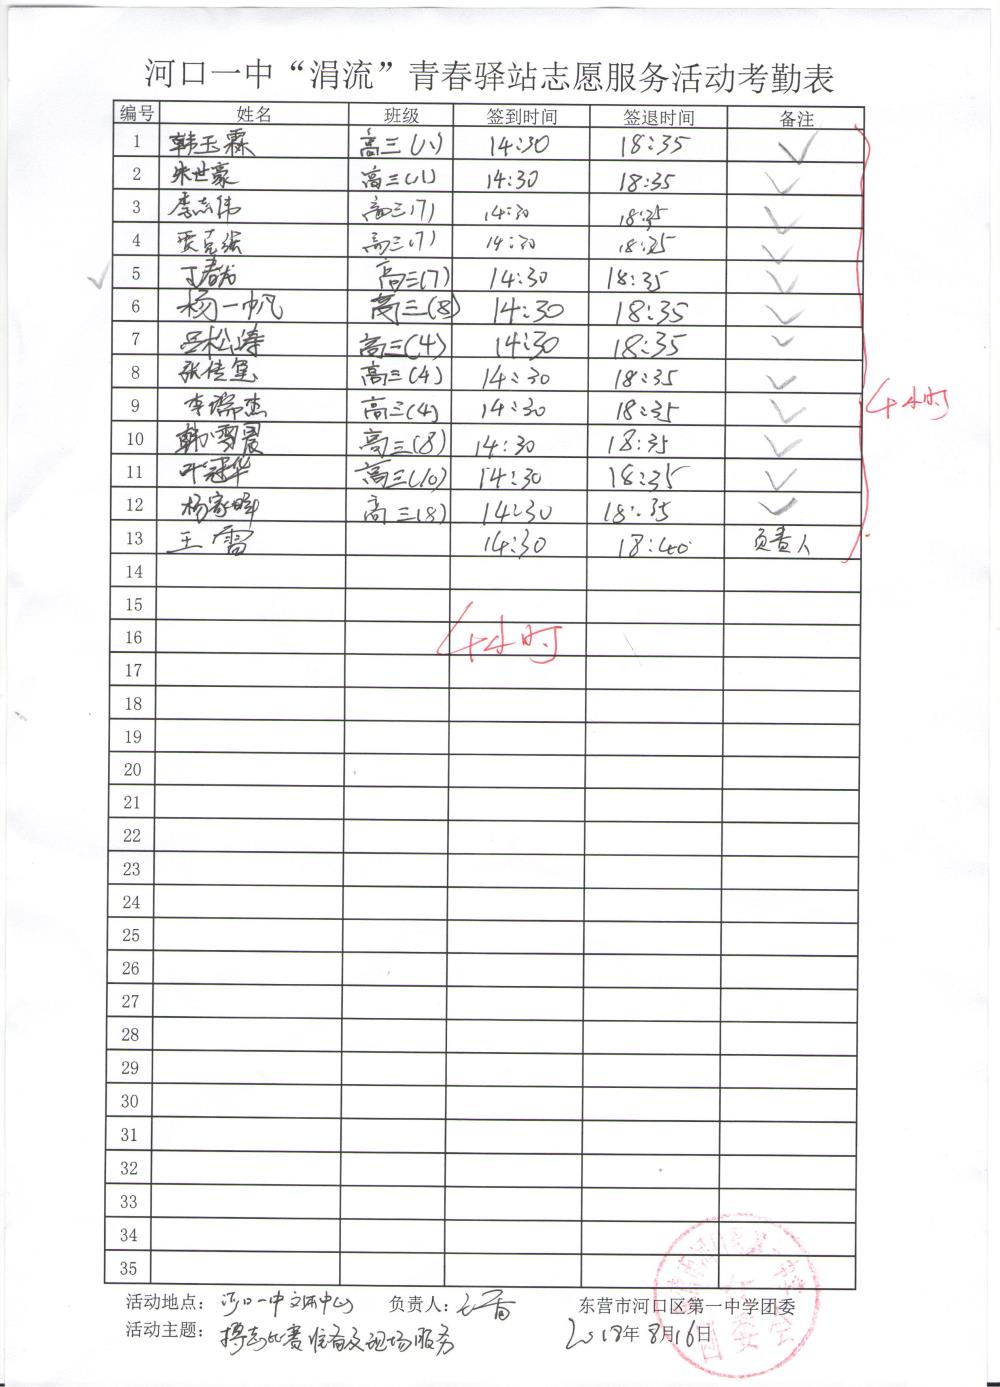 河口一中“涓流”青春驿站志愿服务活动考勤表
编号 姓名 班级 签到时间 签退时间 备注
1 韩玉霖 高三(八) 14:30 18:35 ✓
2 朱世豪 高三(八) 14:30 18:35 ✓
3 李志伟 高三(7) 14:30 18:35 ✓
4 贾克强 高三(7) 14:30 18:35 ✓
5 丁春龙 高三(7) 14:30 18:35 ✓
6 杨一帆 高三(8) 14:30 18:35 ✓
7 吕松涛 高三(4) 14:30 18:35 ✓
8 张佳 高三(4) 14:30 18:35 ✓
9 李瑞杰 高三(4) 14:30 18:35 ✓
4小时
10 韩雪晨 高三(8) 14:30 18:35 ✓
11 叶冠华 高三(10) 14:30 18:35 ✓
12 杨家晖 高三(8) 14:30 18:35 ✓
13 王雷 14:30 18:40 负责人
14
15
16 4小时
17
18
19
20
21
22
23
24
25
26
27
28
29
30
31
32
33
34
35
活动地点：河口一中文体中心 负责人：王雷 东营市河口区第一中学团委
活动主题：搏击比赛准备及现场服务 2018年8月16日